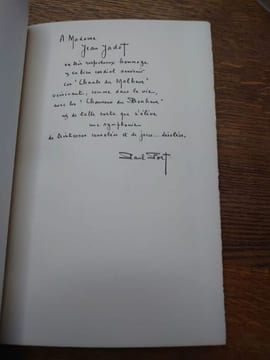 A Madame
Jean Jadot
en très respectueux hommage
et en bien cordial souvenir
ces "Chants du Malheur"
voisinant, comme dans la vie,
avec les "Chansons du Bonheur"
de telle sorte que s'élève
une symphonie
de tristesses consolées et de joies... désolées.
Paul Fort